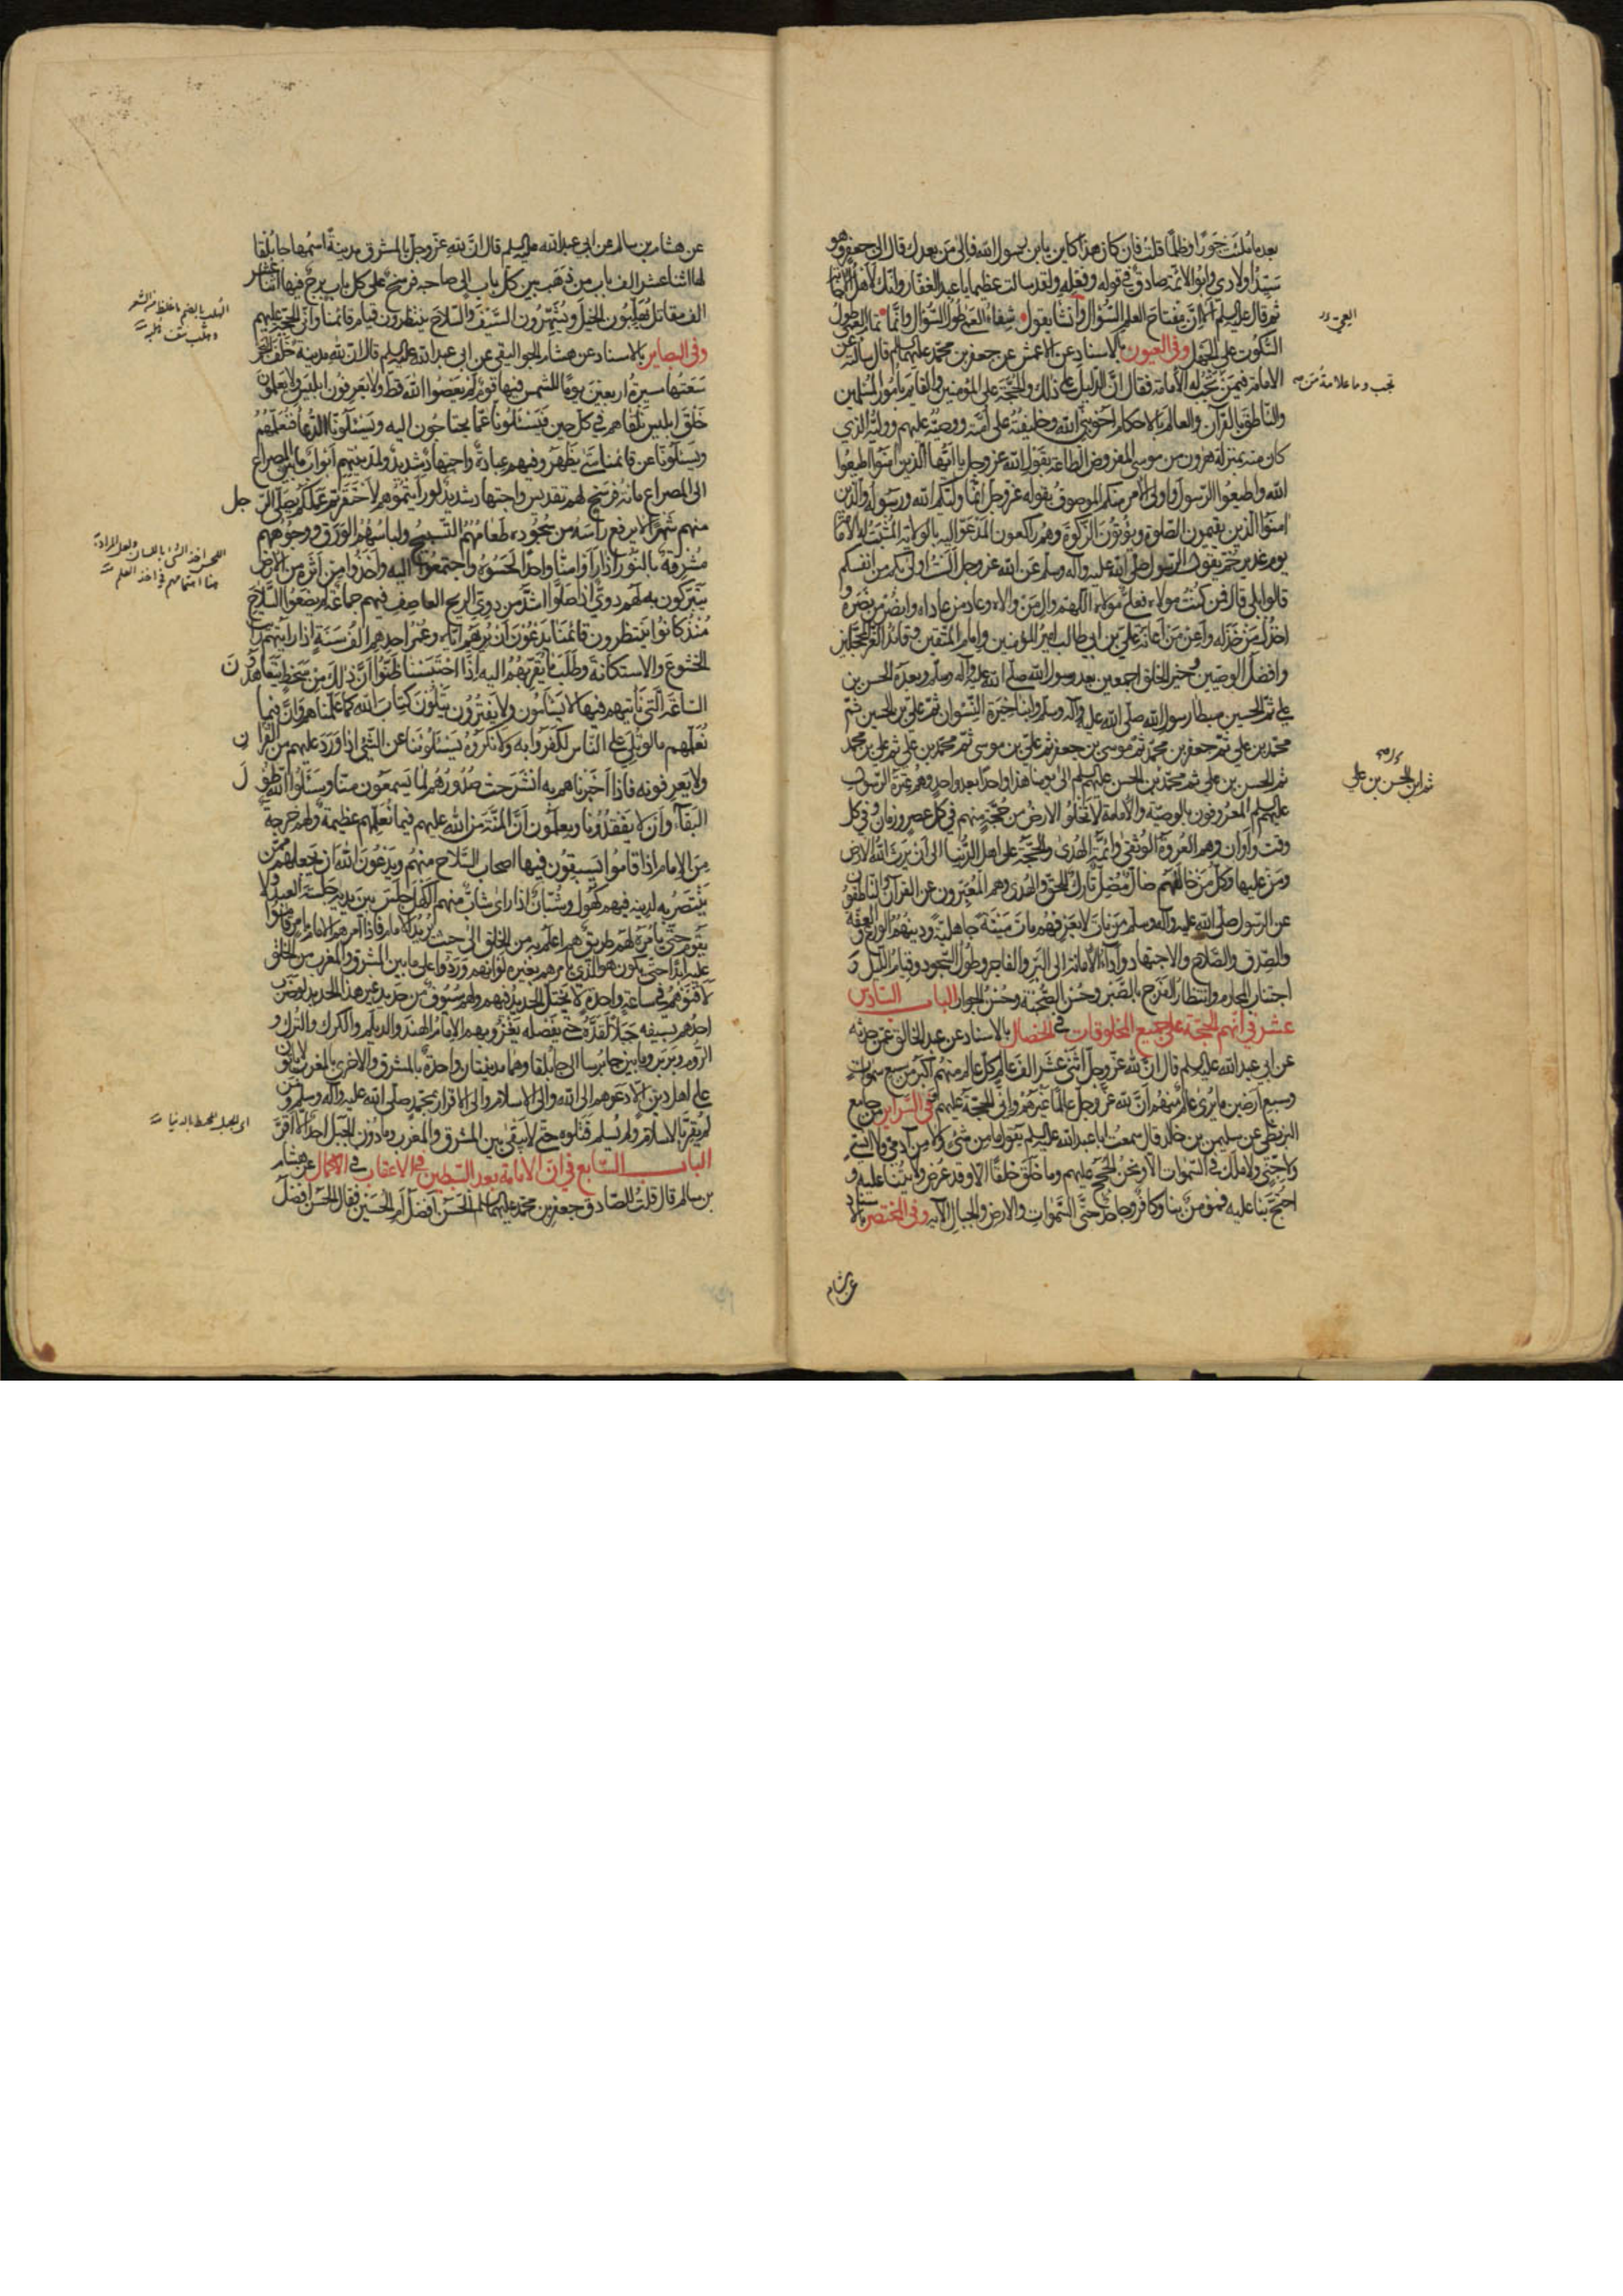 بعد ما ملئت جورا وظلما قلت فان كان هذا كاين يا بن رسول الله فالى من بعدك قال الى جعفر وهو
سيد اولادى وابو الائمة صادق فى قوله وفعله ولقد سالت عظيما يا عبد الغفار وانك لاهل الاجابة
ثم قال عليه السلم الا ان مفتاح العلم السؤال وانشا يقول شفاء العمى طول السؤال وانما تمام العمى طول
السكوت على الجهل وفى العيون بالاسناد عن الاعمش عن جعفر بن محمد عليهما السلم قال سالته عن
الامامة فيمن تجب له الامامة فقال ان الدليل على ذلك والحجة على المؤمنين والقايم بامور المسلمين
والناطق بالقرآن والعالم بالاحكام اخو نبى الله وخليفته على امته ووصيه عليهم ووليه الذى
كان منه بمنزلة هرون من موسى المفروض الطاعة بقول الله عز وجل يا ايها الذين آمنوا اطيعوا
الله واطيعوا الرسول واولى الامر منكم الموصوف بقوله عز وجل انما وليكم الله ورسوله والذين
آمنوا الذين يقيمون الصلوة ويؤتون الزكوة وهم راكعون المدعو اليه بالولاية المثبت له الامامة
يوم غدير خم بقول الرسول صلى الله عليه وآله وسلم عن الله عز وجل الست اولى بكم من انفسكم
قالوا بلى قال فمن كنت مولاه فعلى مولاه اللهم وال من والاه وعاد من عاداه وانصر من نصره و
اخذل من خذله واعن من اعانه على بن ابى طالب امير المؤمنين وامام المتقين وقائد الغر المحجلين
وافضل الوصيين وخير الخلق اجمعين بعد رسول الله صلى الله عليه وآله وسلم وبعده الحسن بن
على ثم الحسين سبطا رسول الله صلى الله عليه وآله وسلم وابنا خيرة النسوان ثم على بن الحسين ثم
محمد بن على ثم جعفر بن محمد ثم موسى بن جعفر ثم على بن موسى ثم محمد بن على ثم على بن محمد
ثم الحسن بن على ثم محمد بن الحسن عليهم السلم الى يومنا هذا واحدا بعد واحد وهم عترة الرسول
عليهم السلم المعروفون بالوصية والامامة لا تخلو الارض من حجة منهم فى كل عصر وزمان وفى كل
وقت واوان وهم العروة الوثقى وائمة الهدى والحجة على اهل الدنيا الى ان يرث الله الارض
ومن عليها وكل من خالفهم ضال مضل تارك للحق والهدى وهم المعبرون عن القرآن والناطقون
عن الرسول صلى الله عليه وآله وسلم من مات لا يعرفهم مات ميتة جاهلية ودينهم الورع والعفة
والصدق والصلاح والاجتهاد واداء الامانة الى البر والفاجر وطول السجود وقيام الليل و
اجتناب المحارم وانتظار الفرج بالصبر وحسن الصحبة وحسن الجوار الباب السادس
عشر فى انهم الحجة على جميع المخلوقات فى الخصال بالاسناد عن عبد الخالق عمن حدثه
عن ابى عبد الله عليه السلم قال ان لله عز وجل اثنى عشر الف عالم كل عالم منهم اكبر من سبع سموات
وسبع ارضين ما يرى عالم منهم ان لله عز وجل عالما غيرهم وانى الحجة عليهم وفى السراير من جامع
البزنطى عن سليمن بن خالد قال سمعت ابا عبد الله عليه السلم يقول ما من شىء ولا من آدمى ولا انسى
ولا جنى ولا ملك فى السموات الا ونحن الحجج عليهم وما خلق خلقا الا وقد عرض ولايتنا عليه و
احتج بنا عليه فمؤمن بنا وكافر وجاحد حتى السموات والارض والجبال الآية وفى المختصر بالاسناد
ثم ابن الحسن بن على
تجب وما علامة من
عن هشام
عن هشام بن سالم عن ابى عبد الله عليه السلم قال ان لله عز وجل بالمشرق مدينة اسمها جابلقا
لها اثنا عشر الف باب من ذهب بين كل باب الى صاحبه فرسخ على كل باب برج فيها اثنا عشر
الف مقاتل يهلبون الخيل ويشهرون السيف والسلاح ينتظرون قيام قائمنا وانى الحجة عليهم
وفى البصاير بالاسناد عن هشام الجواليقى عن ابى عبد الله عليه السلم قال ان لله مدينة خلف البحر
سعتها مسيرة اربعين يوما للشمس فيها قوم لم يعصوا الله قط ولا يعرفون ابليس ولا يعلمون
خلق ابليس نلقاهم فى كل حين فيسئلونا عما يحتاجون اليه ويسئلونا الدعا فنعلمهم
ويسئلونا عن قائمنا متى يظهر وفيهم عبادة واجتهاد شديد ولمدينتهم ابواب ما بين المصراع
الى المصراع مائة فرسخ لهم تقديس واجتهاد شديد لو رايتموهم لاحتقرتم عملكم يصلى الرجل
منهم شهرا لا يرفع رأسه من سجوده طعامهم التسبيح ولباسهم الورق ووجوههم
مشرقة بالنور اذا راوا منا واحدا لحسوه واجتمعوا اليه واخذوا من اثره من الارض
يتبركون به لهم دوى اذا صلوا اشد من دوى الريح العاصف فيهم جماعة لم يضعوا السلاح
منذ كانوا ينتظرون قائمنا يدعون ان يريهم اياه وعمر احدهم الف سنة اذا رايتهم رايت
الخشوع والاستكانة وطلب ما يقربهم اليه اذا احتبسنا ظنوا ان ذلك من سخط يتعاهدون
الساعة التى ناتيهم فيها لا يسأمون ولا يفترون يتلون كتاب الله كما علمناهم وان فيما
نعلمهم ما لو تلى على الناس لكفروا به ولانكروه يسئلونا عن الشئ اذا ورد عليهم من القرآن
ولا يعرفونه فاذا اخبرناهم به انشرحت صدورهم لما يسمعون منا وسئلوا الله طول
البقاء وان لا يفقدونا ويعلمون ان المنة من الله عليهم فيما نعلمهم عظيمة ولهم خرجة
مع الامام اذا قاموا يسبقون فيها اصحاب السلاح منهم ويدعون الله ان يجعلهم ممن
ينتصر به لدينه فيهم كهول وشبان اذا راى شاب منهم الكهل جلس بين يديه جلسة العبد لا
يقوم حتى يأمره لهم طريق هم اعلم به من الخلق الى حيث يريد الامام فاذا امرهم الامام بامر قاموا
عليه ابدا حتى يكون هو الذى يامرهم بغيره لو انهم وردوا على ما بين المشرق والمغرب من الخلق
لافنوهم فى ساعة واحدة لا يختل الحديد فيهم ولهم سيوف من حديد غير هذا الحديد لو ضرب
احدهم بسيفه جبلا لقده حتى يفصله يغزو بهم الامام الهند والديلم والكرك والترك و
الروم وبربر وما بين جابرسا الى جابلقا وهما مدينتان واحدة بالمشرق والاخرى بالمغرب لا ياتون
على اهل دين الا دعوهم الى الله والى الاسلام والى الاقرار بمحمد صلى الله عليه وآله وسلم ومن
لم يقر بالاسلام ولم يسلم قتلوه حتى لا يبقى بين المشرق والمغرب وما دون الجبل احد الا اقر
الباب السابع فى ان الامامة بعد السبطين فى الاعقاب فى الاكمال عن هشام
بن سالم قال قلت للصادق جعفر بن محمد عليهما السلم الحسن افضل ام الحسين فقال الحسن افضل
الهلب بالضم ما غلظ من الشعر
اللحس اخذ الشئ باللسان ولعل المراد به
هنا اهتمامهم فى اخذ العلم
اى الجبل المحيط بالدنيا